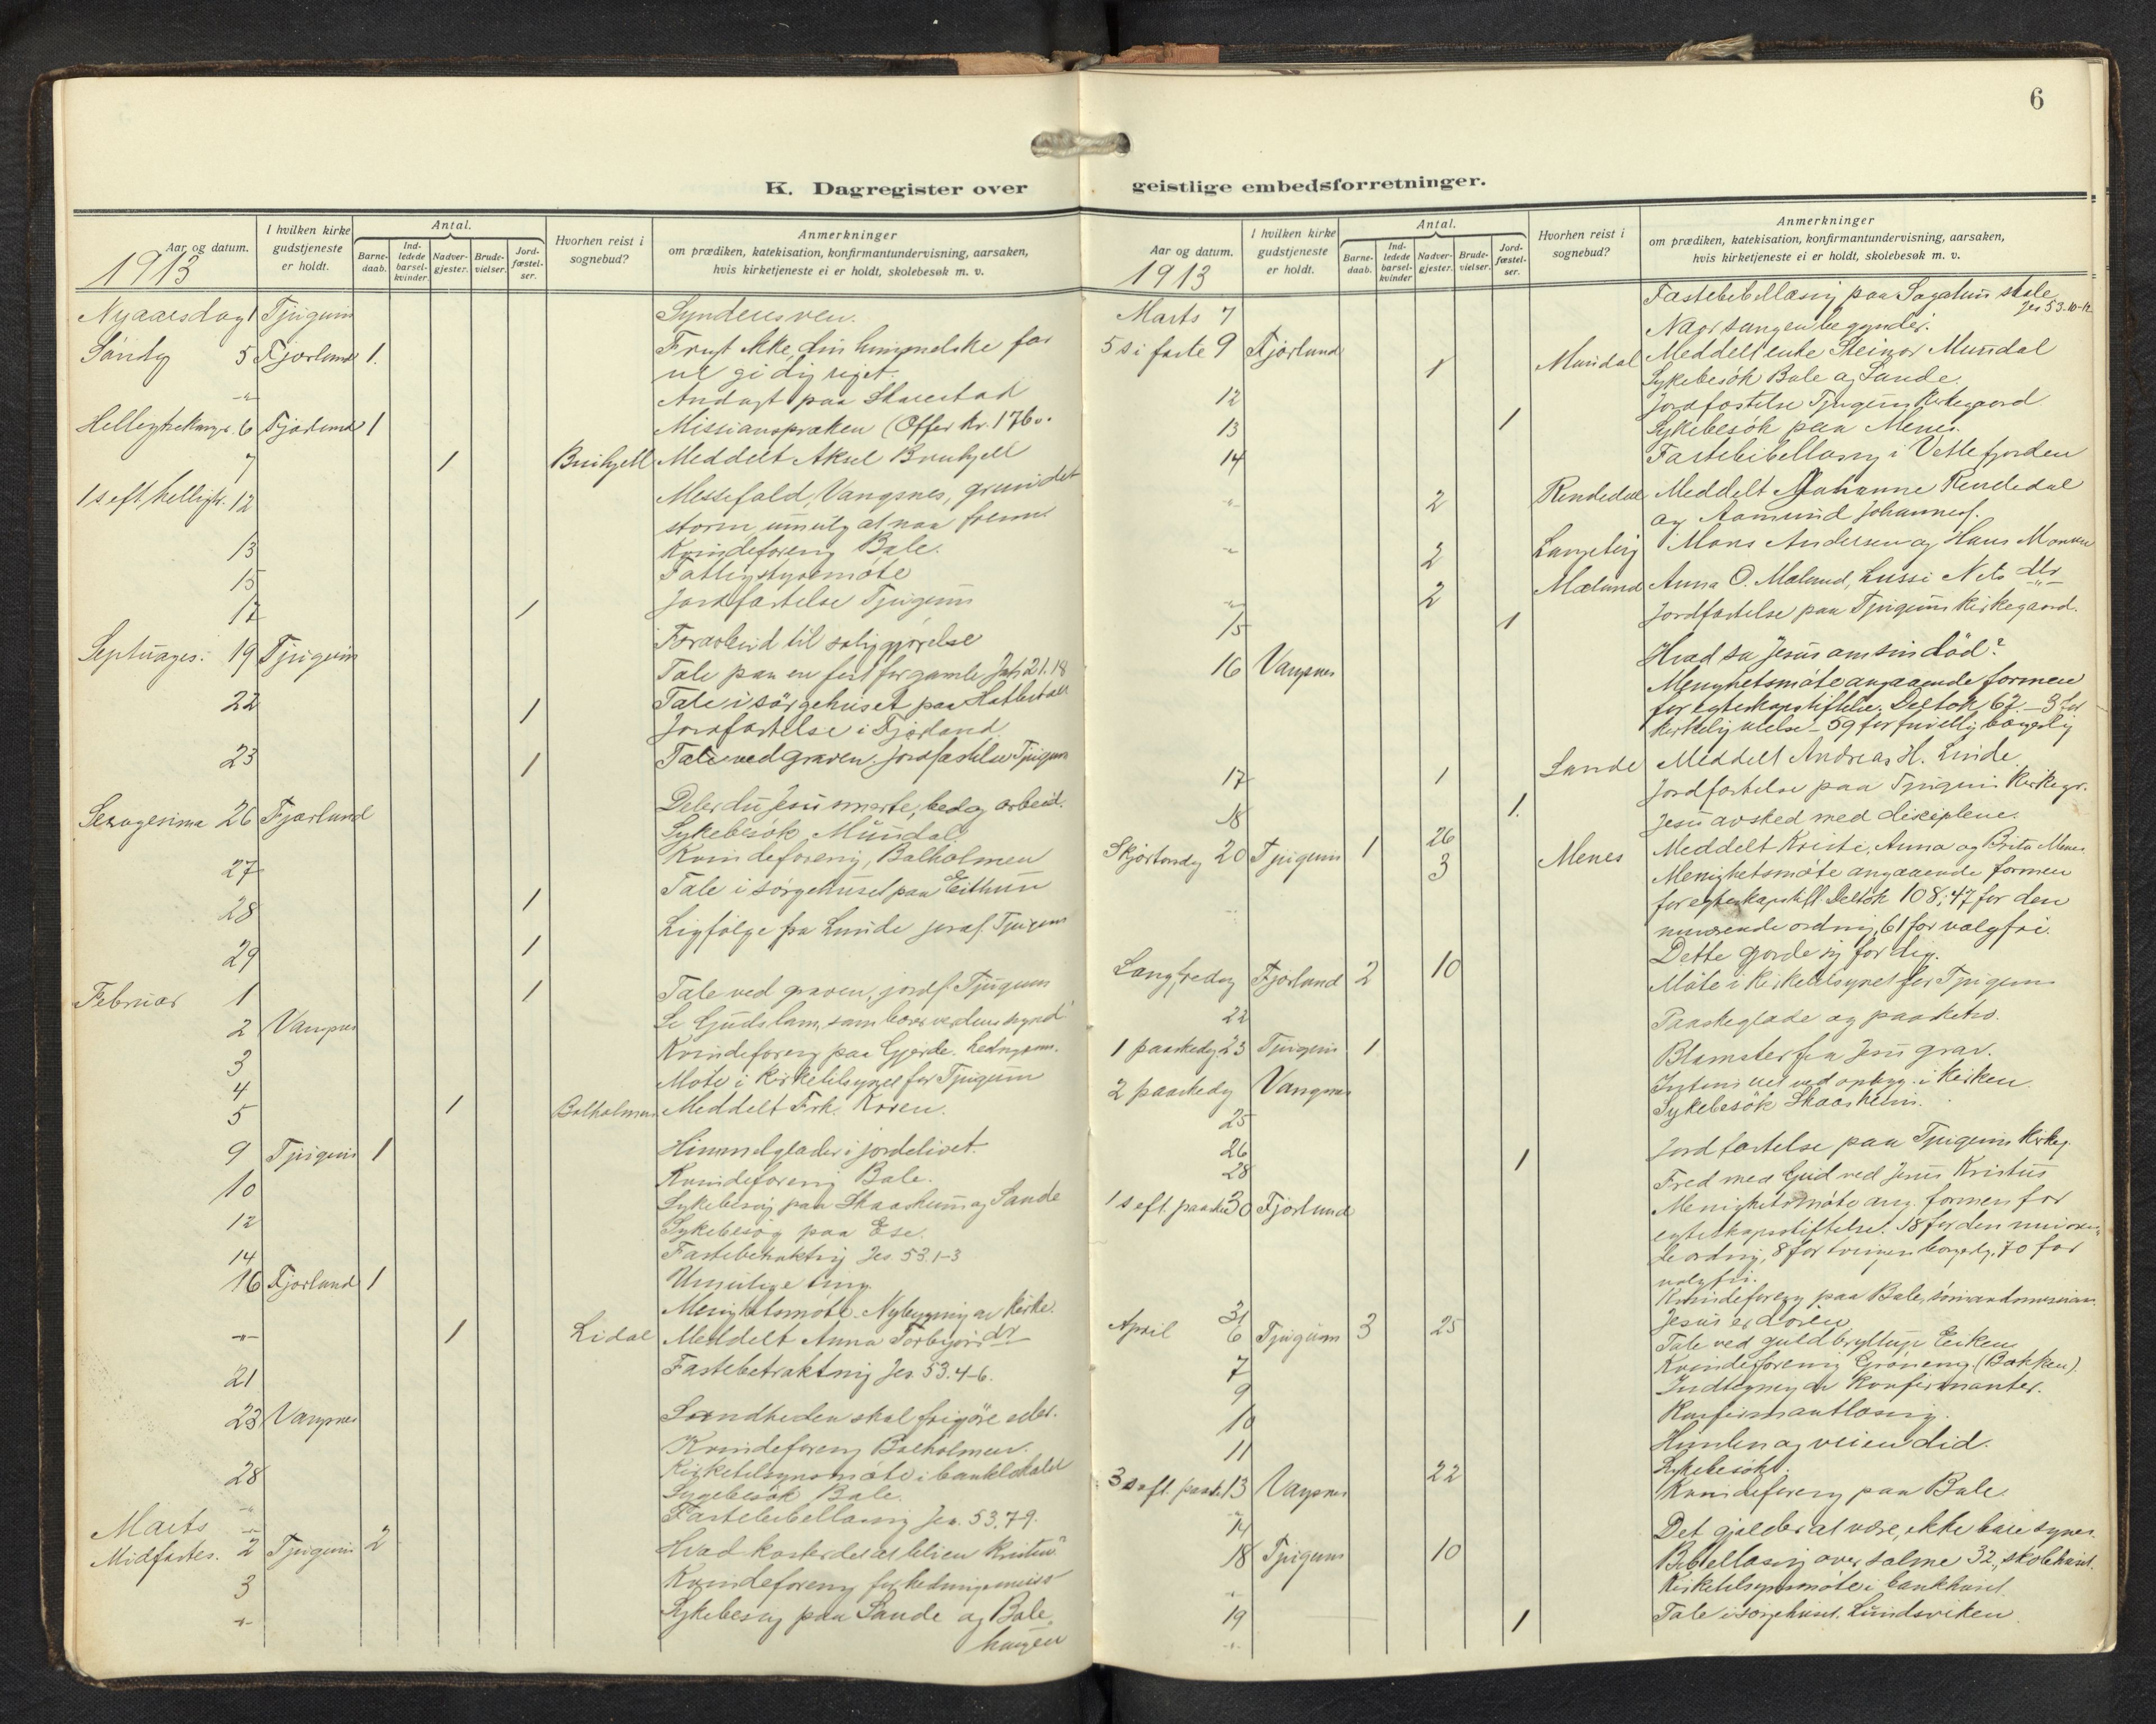 6
K. Dagregister over geistlige embedsforretninger.
Aar og datum. I hvilken kirke gudstjeneste er holdt. Antal. Barne-daab. Ind-ledede barsel-kvinder. Nadver-gjester. Brude-vielser. Jord-fæstel-ser. Hvorhen reist i sognebud? Anmerkninger om prædiken, katekisation, konfirmantundervisning, aarsaken, hvis kirketjeneste ei er holdt, skolebesøk m. v.
1913
Nyaarsdag 1 Tjugum Synderes ven.
Søndg 5 Fjærland 1. Frygt ikke, din himmelske far
vil gi dig riget.
-"- Andagt paa Skarestad
Helligtrekongsd. 6 Fjærland 1 Missionspræken (Offer kr. 176
7 1 Meddelt Aksel
1 s eft. helligtr. 12 Messefald, Vangsnes, grundet
storm umulig at naa frem.
13 Kvindeforening Bale.
15 Fattigstyremøte
17 1 Jordfæstelse Tjugum
Septuages. 19 Tjugum Forarbeid til saliggjørelse
Tale paa en fest for gamle Joh 21.18
22 1 Tale i sørgehuset paa
Jordfæstelse i Fjærland.
23 1 Tale ved graven. Jordfæstelse Tjugum
Sexagesima 26 Fjærland Deler du Jesu smerte, bed og arbeid.
Sykebesøk, Mundal
27 Kvindeforening, Balholmen
28 1 Tale i sørgehuset paa Eithun
29 1 Ligfølge fra Lunde jordf. Tjugum
Februar 1 1 Tale ved graven, jordf. Tjugum
2 Vangsnes Se Guds lam, som bærer verdens synd
3 Kvindeforening paa Gjerde. hedningem.
4 Møte i kirketilsynet for Tjugum
5 1 Balholmen Meddelt Frk. Koren.
9 Tjugum 1 Himmelglæder i jordelivet.
10 Kvindeforening Bale.
12 Sykebesøg paa Skaasheim og Sande
Sykebesøg paa Ese.
14 Fastebetraktnig Jes. 53.1-3
16 Fjærland 1 Umulige ting.
Menighetsmøte. Nybygning av kirke.
-"- 1 Lidal Meddelt Anna Torbjørnsdr
21 Fastebetraktnig Jes. 53.4-6.
23 Vangsnes Sandheden skal frigjøre eder.
Kvindeforening Balholmen.
28 Kirketilsynsmøte i banklokalet
-"- Sygebesøk Bale.
Marts -"- Fastebibellæsnig Jes. 53.7-9.
Midfastes. 2 Tjugum 2 Hvad koster det at bli en kristen?
3 Kvindeforening for hedningemiss
-"- Sykebesøg paa Sande og Bale
haugen
Aar og datum. I hvilken kirke gudstjeneste er holdt. Antal. Barne-daab. Ind-ledede barsel-kvinder Nadver-gjester. Brude-vielser. Jord-fæstel-ser. Hvorhen reist i sognebud? Anmerkninger om prædiken, katekisation, konfirmantundervisning, aarsaken, hvis kirketjeneste ei er holdt, skolebesøk m. v.
1913
Marts 7 Fastebibellæsnig paa Sagatun skole
Jes 53.10-12
5 s i faste 9 Fjærland Naar sangen begynder.
1 Mundal Meddelt enke Steinor Mundal
12 Sykebesøk Bale og Sande.
13 1 Jordfæstelse Tjugum kirkegaard.
14 Sykebesøk paa Menes.
Fastebibellæsnig i Vetlefjorden
-"- 2 Rendedal Meddelt Johanne Rendedal
og Aamund Johannes.
-"- 2 Mons Andersen og Hans Monsen
-"- 2 Mælund Anna O. Mælund, Lussi Nils dtr
15 1 Jordfæstelse paa Tjugum kirkegaard.
16 Vangsnes Hvad sa Jesus om sin død?
Menighetsmøte angaaende formen
for egteskapsstiftelse. Deltok 62 - 3 for
kirkelig vielse - 59 for frivillig borgerlig
17 1 Meddelt Andreas H. Linde
18 1. Jordfæstelse paa Tjugum kirkegr.
Skjærtorsdg 20 Tjugum 1 26 Jesu avsked med disciplene.
3 Menes Meddelt Kristi, Anna og Brita Menes
-"- Menighetsmøte angaaende formen
for egteskapstift. Deltok 108; 47 for den
nuværende ordnig, 61 for valgfri.
Langfredag Fjærland 2 10 Dette gjorde jeg for dig.
22 Møte i kirketilsynet for Tjugum
1 paaskedg. 23 Tjugum 1 Paaskeglæde og paasketro.
2 paaskedg Vangsnes Blomster fra Jesu grav.
25 i kirken.
26 Sykebesøk Skaasheim.
28 1 Jordfæstelse paa Tjugum kirkeg.
1 s eft. paaske 30 Fjærland Fred med Gud ved Jesus Kristus
Menighetsmøte ang. formen for
egteskapsstiftelse. 18 for den nuværen
de ordnig, 8 for tvungen borgerlig, 70 for
valgfri.
31 Kvindeforening paa Bale, sømandsmission.
April 6 Tjugum 3 25 Jesus er døren
7 Tale ved guldbryllup
9 Kvindeforening Grøneng. (Bakken).
10 Indtegning av konfirmanter.
11 Konfirmantlæsnig.
3 s eft. paaske 13 Vangsnes 22 Himlen og veien did.
Sykebesøkt.
14 Kvindeforening paa Bale.
18 Tjugum 10 Det gjælder at være, ikke bare synes.
-"- Bibellæsnig over salme 32, skolehuset.
19 Kirketilsynsmøte i bankhuset
-"- 1 Tale i sørgehuset. Lundsviken.